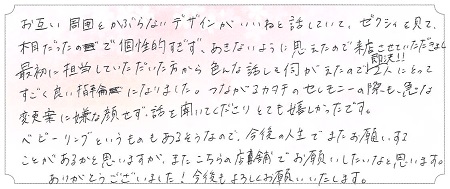 お互い周囲とかぶらないデザインがいいねと話していて、ゼクシィを見て、
本目だったので個性的すぎず、あきないように思えたので来店させていただきました
即決!!
最初に担当していただいた方から色んな話しを伺えたので2人にとって
すごく良い指輪になりました。つながるカタチのセレモニーの際も、急な
変更案に嫌な顔せず、話を聞いてくださりとても嬉しかったです。
ベビーリングというものもあるそうなので、今後の人生でまたお願いする
ことがあるかと思いますが、またこちらの店舗でお願いしたいなと思います。
ありがとうございました!今後もよろしくお願いいたします。